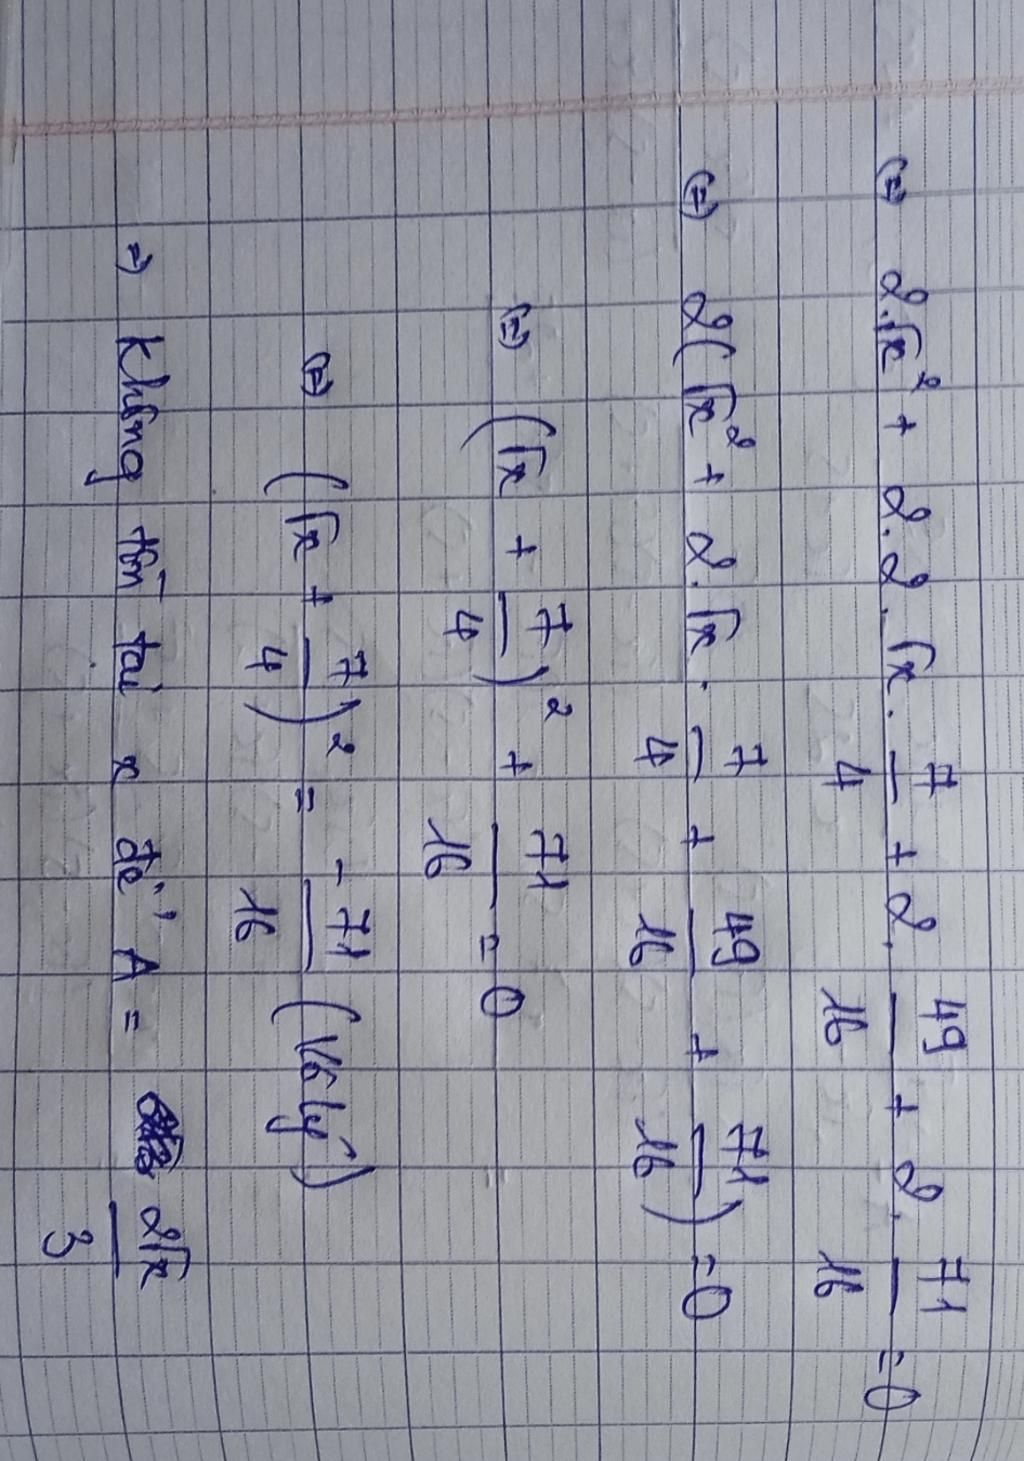 (=) 2.√x² + 2.2.√x. 7/4 + 2. 49/16 + 2. 71/16 = 0
(=) 2(√x² + 2.√x. 7/4 + 49/16 + 71/16) = 0
(=) (√x + 7/4)² + 71/16 = 0
(=) (√x + 7/4)² = - 71/16 (Vô lý)
=) Không tồn tại x để A = 2√x/3